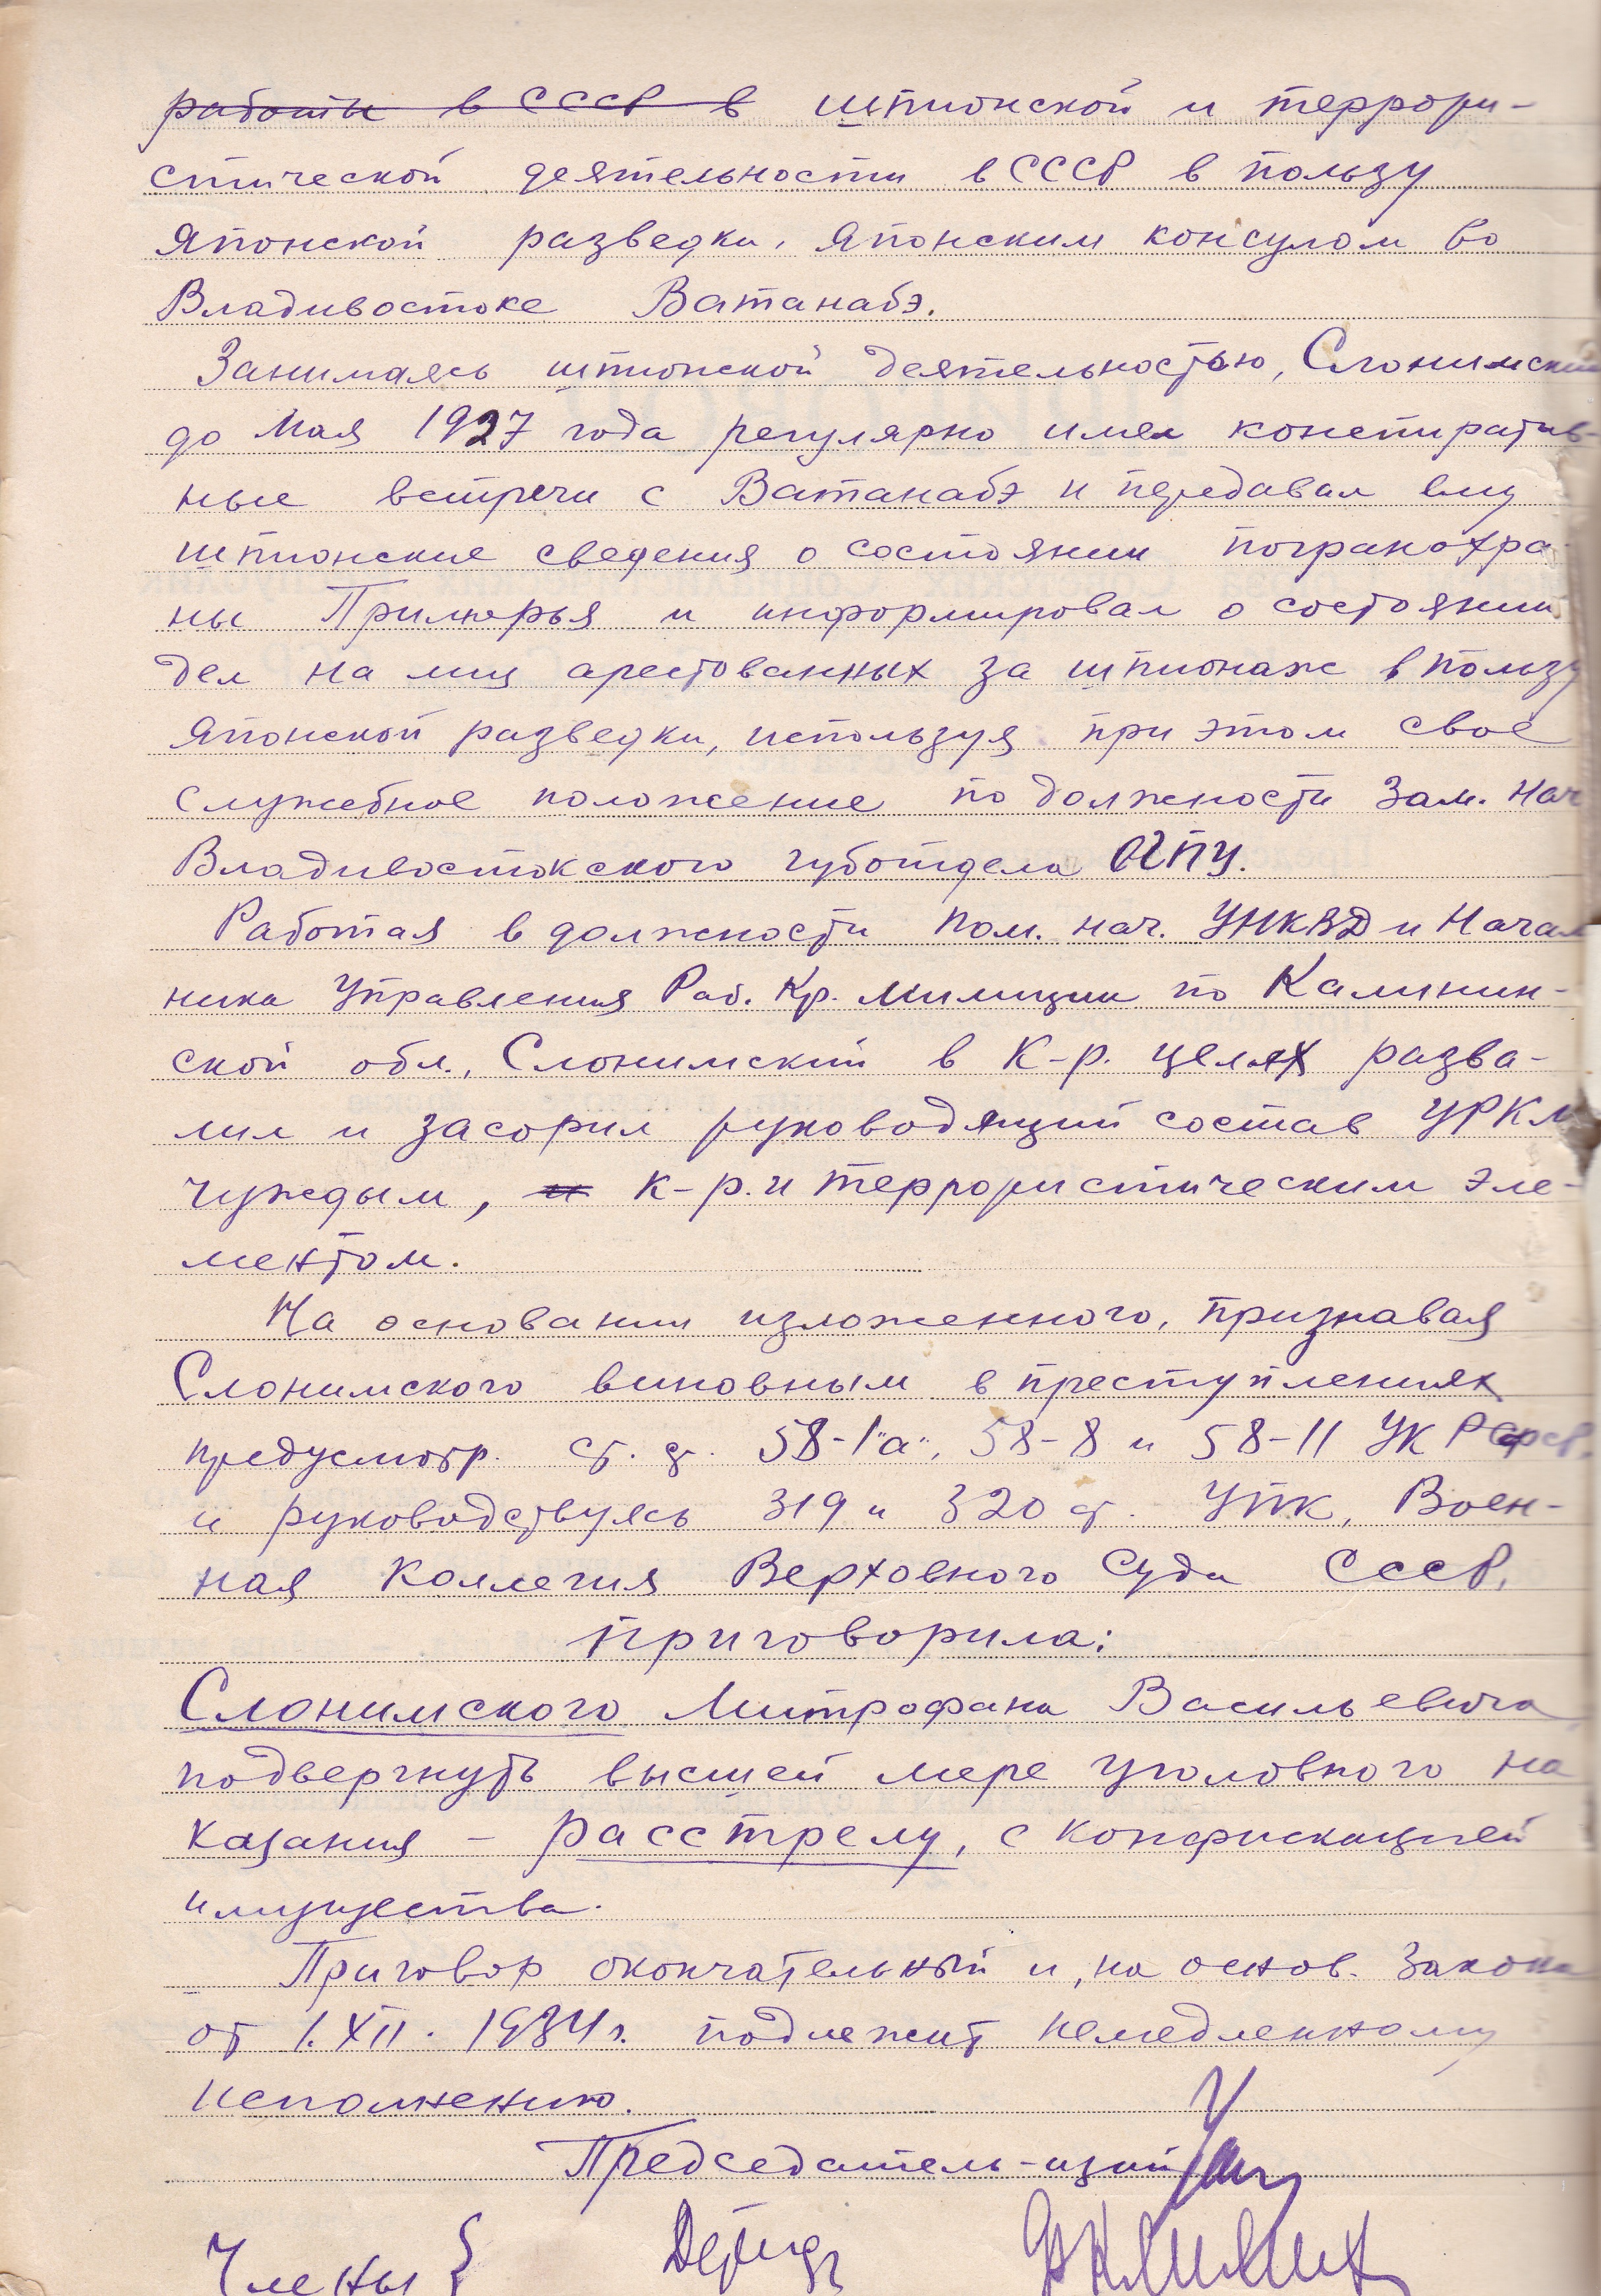 работы в СССР в шпионской и террори-
стической деятельности в СССР в пользу
Японской разведки, Японским консулом во
Владивостоке Ватанабэ.
Занимаясь шпионской деятельностью, Слонимский
до мая 1927 года регулярно имел конспиратив-
ные встречи с Ватанабэ и передавал ему
шпионские сведения о состоянии погранохра-
ны Приморья и информировал о состоянии
дел на лиц арестованных за шпионаж в пользу
Японской разведки, используя при этом свое
служебное положение по должности Зам. Нач
Владивостокского губотдела ОГПУ.
Работая в должности Пом. нач. УНКВД и Начал
ника Управления Раб. Кр. Милиции по Калинин-
ской обл., Слонимский в К-р. целях разва-
лил и засорил руководящий состав УРКМ
чуждым, и к-р. и террористическим эле-
ментом.
На основании изложенного, признавая
Слонимского виновным в преступлениях
предусмотр. ст. ст. 58-1"а", 58-8 и 58-11 УК РСФСР,
и руководствуясь 319 и 320 ст. УПК, Воен-
ная Коллегия Верховного Суда СССР,
приговорила:
Слонимского Митрофана Васильевича
подвергнуть высшей мере уголовного на
казания – расстрелу, с конфискацией
имущества.
Приговор окончательный и, на основ. Закона
от 1.XII. 1934 г. подлежит немедленному
исполнению.
Председатель-щий
Члены